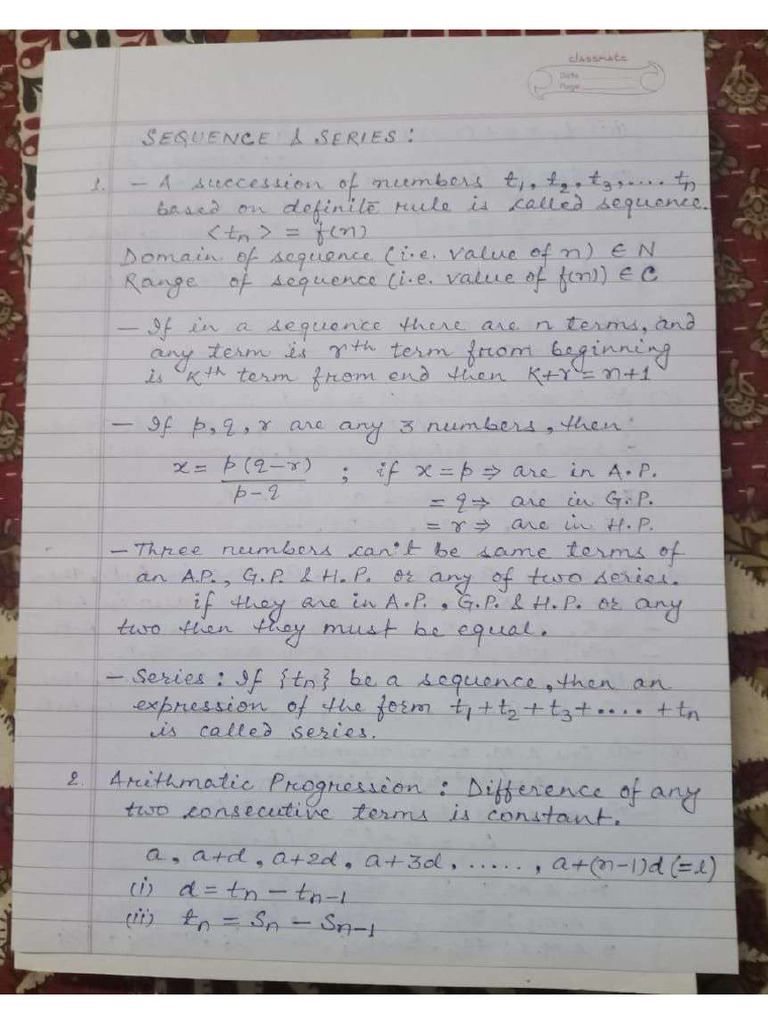 classmate
Date
Page
SEQUENCE & SERIES :
1. – A succession of numbers t₁, t₂, t₃, .... tₙ
based on definite rule is called sequence.
<tₙ> = f(n)
Domain of sequence (i.e. value of n) ∈ N
Range of sequence (i.e. value of f(n)) ∈ C
– If in a sequence there are n terms, and
any term is rᵗʰ term from beginning
is Kᵗʰ term from end then K+r = n+1
– If p, q, r are any 3 numbers, then
x = p(q–r)/p–q ; if x = p ⇒ are in A.P.
= q ⇒ are in G.P.
= r ⇒ are in H.P.
– Three numbers can't be same terms of
an A.P., G.P. & H.P. or any of two series.
if they are in A.P., G.P. & H.P. or any
two then they must be equal.
– Series : If {tₙ} be a sequence, then an
expression of the form t₁+t₂+t₃+....+tₙ
is called series.
2. Arithmatic Progression : Difference of any
two consecutive terms is constant.
a, a+d, a+2d, a+3d, ......, a+(n–1)d (=l)
(i) d = tₙ – tₙ₋₁
(ii) tₙ = Sₙ – Sₙ₋₁